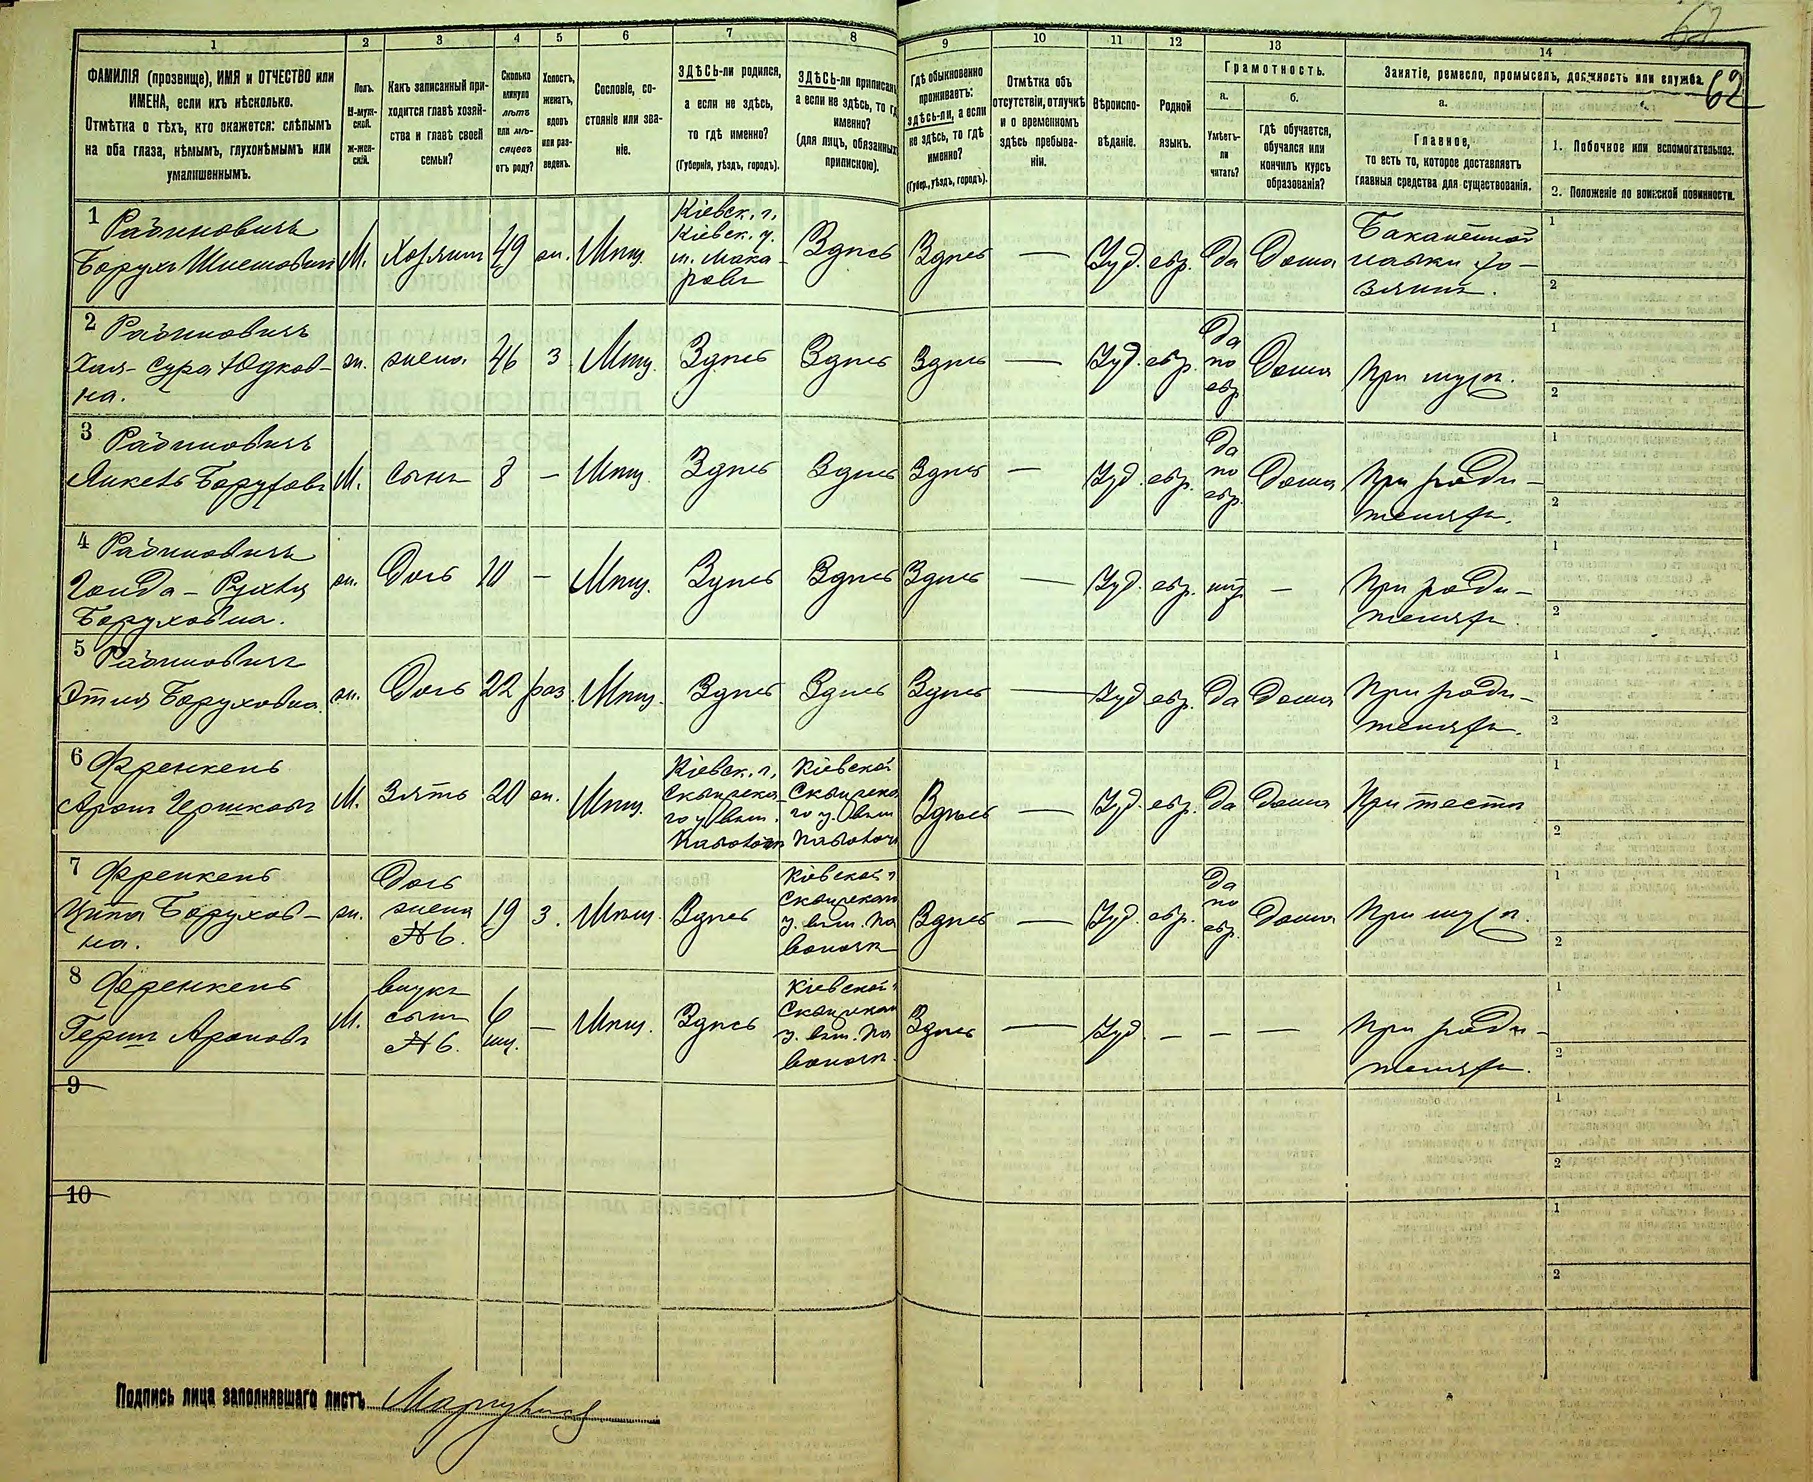 62
62
1 2 3 4 5 6 7 8 9 10 11 12 13 14
ФАМИЛІЯ (прозвище), ИМЯ и ОТЧЕСТВО или
ИМЕНА, если ихъ нѣсколько.
Отмѣтка о тѣхъ, кто окажется: слѣпымъ
на оба глаза, нѣмымъ, глухонѣмымъ или
умалишеннымъ.
Полъ.
М-муж-
ской.
Ж-жен-
скій.
Какъ записанный при-
ходится главѣ хозяй-
ства и главѣ своей
семьи?
Сколько
минуло
лѣтъ
или мѣ-
сяцевъ
отъ роду?
Холостъ,
женатъ,
вдовъ
или раз-
веденъ.
Сословіе, со-
стояніе или зва-
ніе.
ЗДѢСЬ-ли родился,
а если не здѣсь,
то гдѣ именно?
(Губернія, уѣздъ, городъ).
ЗДѢСЬ-ли приписанъ
а если не здѣсь, то гдѣ
именно?
(для лицъ, обязанныхъ
припискою).
Гдѣ обыкновенно
проживаетъ:
здѣсь-ли, а если
не здѣсь, то гдѣ
именно?
(Губер., уѣздъ, городъ).
Отмѣтка объ
отсутствіи, отлучкѣ
и о временномъ
здѣсь пребыва-
ніи.
Вѣроиспо-
вѣданіе.
Родной
языкъ.
Грамотность.
а.
Умѣетъ-
ли
читать?
б.
Гдѣ обучается,
обучался или
кончилъ курсъ
образованія?
Занятіе, ремесло, промыселъ, должность или служба.
а.
Главное,
то есть то, которое доставляетъ
главныя средства для существованія.
1. Побочное или вспомогательное.
2. Положеніе по воинской повинности.
1 Рабиновичъ
Борухъ М. Хозяинъ 49 ж. Мѣщ. Кіевск. г. Кіевск. у. м. Мака-ровъ Здѣсь Здѣсь — Іуд. евр. да Дома Бакалейной лавки хо-зяинъ. 1 2
2 Рабиновичъ
Хая-Сура Юдков-
на. ж. жена 46 з Мѣщ. Здѣсь Здѣсь Здѣсь — Іуд. евр. Да по евр. Дома При мужѣ. 1 2
3 Рабиновичъ
Янкель Боруховъ М. сынъ 8 — Мѣщ. Здѣсь Здѣсь Здѣсь — Іуд. евр. Да по евр. Дома При роди-теляхъ. 1 2
4 Рабиновичъ
Голда-Рухля
Боруховна. ж. Дочь 10 — Мѣщ. Здѣсь Здѣсь Здѣсь — Іуд. евр. нѣт — При роди-теляхъ. 1 2
5 Рабиновичъ
Этля Боруховна. ж. Дочь 22 раз. Мѣщ. Здѣсь Здѣсь Здѣсь — Іуд. евр. Да Дома При роди-теляхъ. 1 2
6 Френкель
Аронъ Гершковъ М. Зять 20 ж. Мѣщ. Кіевск. г. Сквирска-го у. Кіевской Сквирска-го у. Здѣсь — Іуд. евр. Да Дома При тестѣ 1 2
7 Френкель
Ципа Борухов-
на. ж. Дочь жена №6. 19 з. Мѣщ. Здѣсь Кіевской г. Сквирскаго у. Здѣсь — Іуд. евр. Да по евр. Дома При мужѣ. 1 2
8 Френкель
Гершъ Ароновъ М. внукъ сынъ №6. 6 мц. — Мѣщ. Здѣсь Кіевской г. Сквирскаго у. Здѣсь — Іуд. — — — При роди-теляхъ. 1 2
9 1 2
10 1 2
Подпись лица заполнявшаго листъ